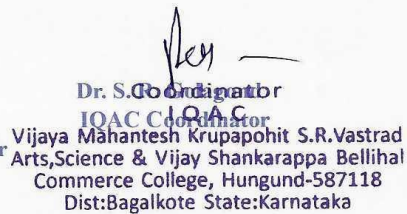 Dr. S.R. Golagond
Coordinator
IQAC Coordinator
IQAC
Vijaya Mahantesh Krupapohit S.R.Vastrad
r
Arts,Science & Vijay Shankarappa Bellihal
Commerce College, Hungund-587118
Dist:Bagalkote State:Karnataka